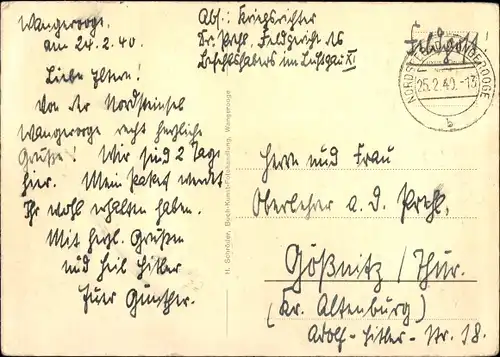 Wangerooge,
am 24.2.40.
Liebe Eltern!
Von der Nordseeinsel
Wangerooge recht herzliche
Grüße! Wir sind 2 Tage
hier. Mein Paket werdet
Ihr wohl erhalten haben.
Mit herzl. Grüßen
und Heil Hitler
Euer Günther.
Abs.: Kriegsrichter
Dr. Prehl, Feldgericht des
Befehlshabers im Luftgau XI
Feldpost!
NORDSEEBAD WANGEROOGE
25.2.40.-13
b
H. Schröder, Buch-Kunst-Fotohandlung, Wangerooge
Herrn und Frau
Oberlehrer a. d. Prehl,
Gößnitz / Thür.
(Kr. Altenburg)
Adolf-Hitler-Str. 18.